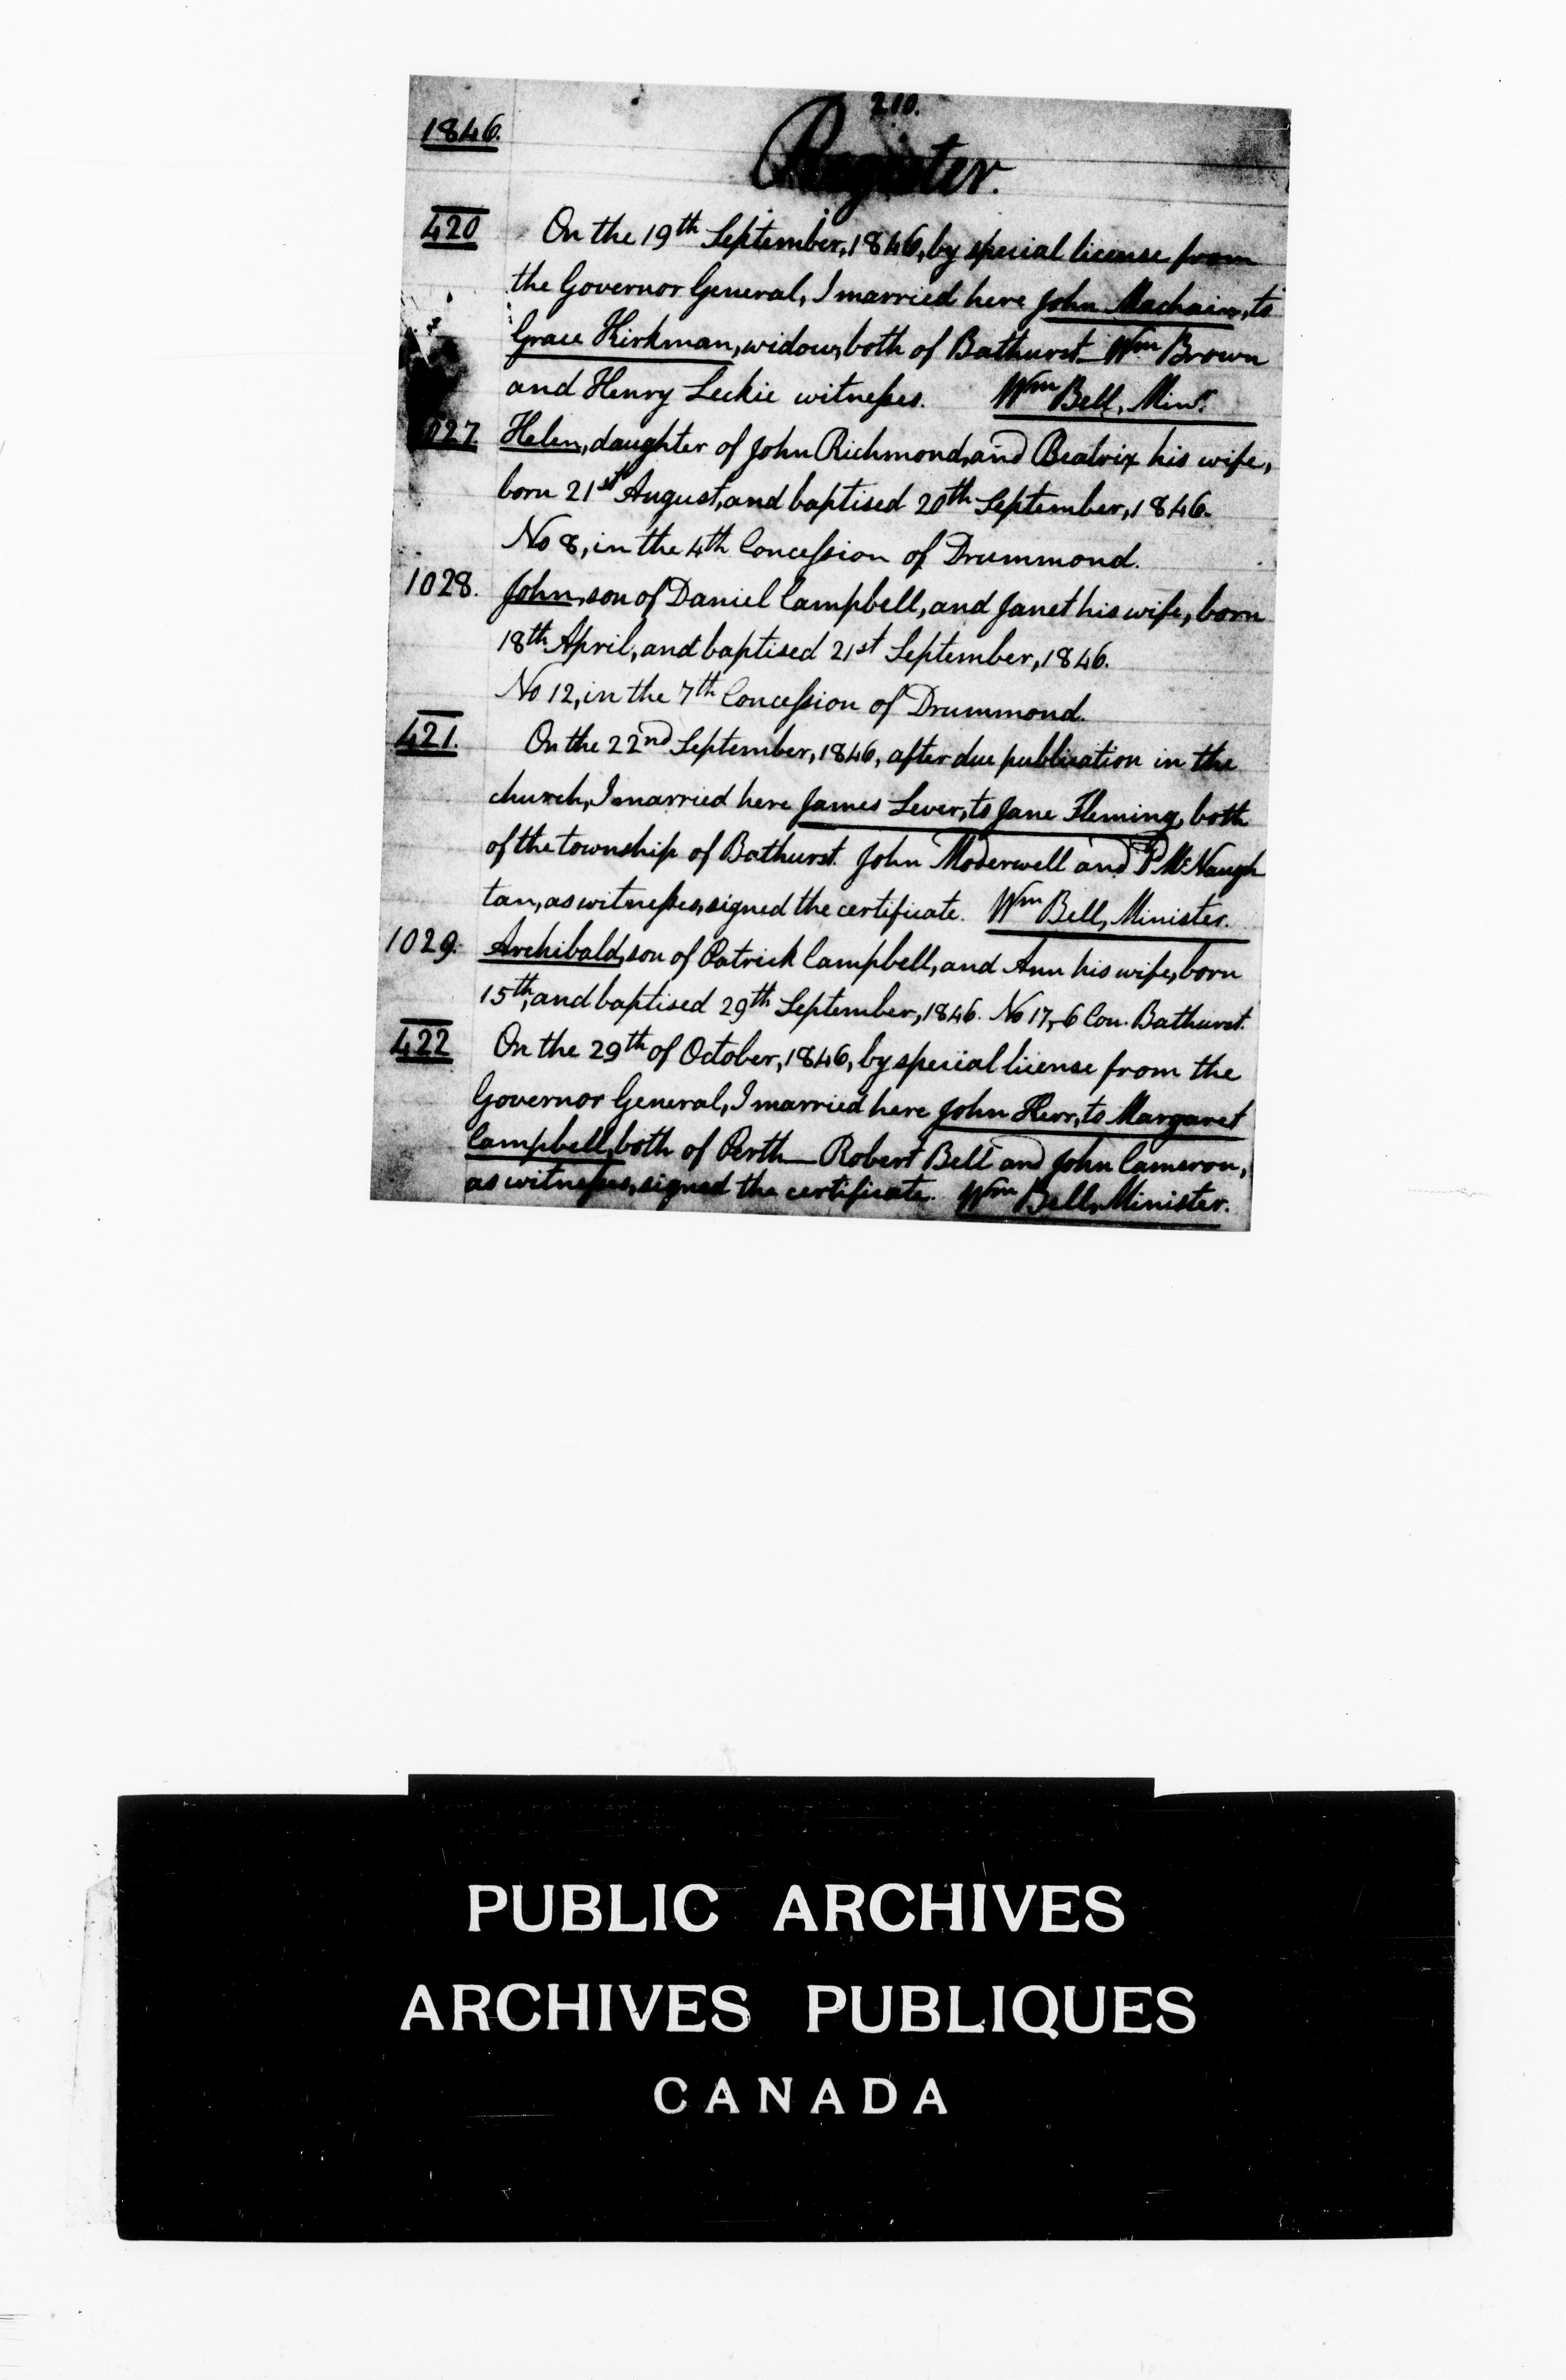 210.
1846.
Register.
420 On the 19th September, 1846, by special license from
the Governor General, I married here John Machair, to
Grace Kirkman, widow, both of Bathurst — Wm Brown
and Henry Leckie witnesses. Wm Bell, Minr.
1027. Helen, daughter of John Richmond, and Beatrix his wife,
born 21st August, and baptised 20th September, 1846.
No 8, in the 4th Concession of Drummond.
1028. John, son of Daniel Campbell, and Janet his wife, born
18th April, and baptised 21st September, 1846.
No 12, in the 7th Concession of Drummond.
421. On the 22nd September, 1846, after due publication in the
church, I married here James Lever, to Jane Fleming, both
of the township of Bathurst. John Moderwell and P McNaugh
tan, as witnesses, signed the certificate. Wm Bell, Minister.
1029. Archibald, son of Patrick Campbell, and Ann his wife, born
15th, and baptised 29th September, 1846. No 17, 6 Con. Bathurst.
422 On the 29th of October, 1846, by special license from the
Governor General, I married here John Kerr, to Margaret
Campbell, both of Perth — Robert Bell and John Cameron,
as witnesses, signed the certificate. Wm Bell, Minister.
PUBLIC ARCHIVES
ARCHIVES PUBLIQUES
CANADA